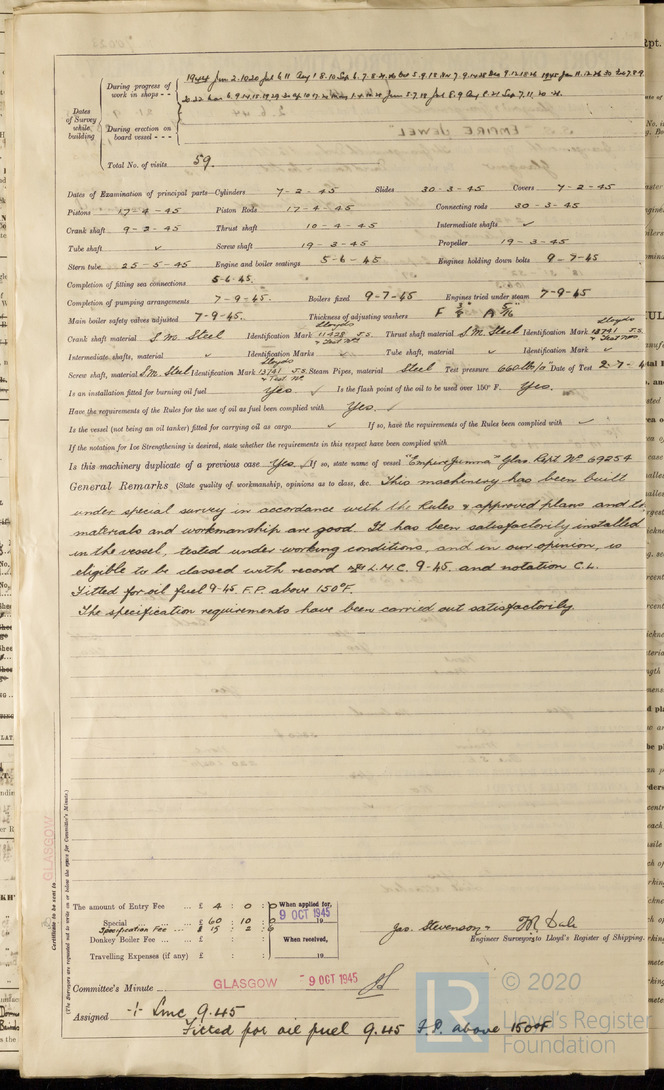 Dates of Survey while building
During progress of work in shops - -
During erection on board vessel - - -
Total No. of visits 59.
Dates of Examination of principal parts—Cylinders 7-2-45 Slides 30-3-45 Covers 7-2-45
Pistons 17-4-45 Piston Rods 17-4-45 Connecting rods 30-3-45
Crank shaft 9-3-45 Thrust shaft 10-4-45 Intermediate shafts ✓
Tube shaft ✓ Screw shaft 19-3-45 Propeller 19-3-45
Stern tube 25-5-45 Engine and boiler seatings 5-6-45 Engines holding down bolts 9-7-45
Completion of fitting sea connections 5-6-45.
Completion of pumping arrangements 7-9-45. Boilers fixed 9-7-45 Engines tried under steam 7-9-45
Main boiler safety valves adjusted 7-9-45. Thickness of adjusting washers
Crank shaft material S.M. Steel Identification Mark Lloyds 11428 J.S. & Test No Thrust shaft material S.M. Steel Identification Mark Lloyds 13741 J.S. & Test No
Intermediate shafts, material ✓ Identification Marks ✓ Tube shaft, material ✓ Identification Mark ✓
Screw shaft, material S.M. Steel Identification Mark Lloyds 13741 J.S. & Test No Steam Pipes, material Steel Test pressure 660 lbs/□ Date of Test 2-7-4
Is an installation fitted for burning oil fuel Yes ✓ Is the flash point of the oil to be used over 150° F. Yes.
Have the requirements of the Rules for the use of oil as fuel been complied with Yes. ✓
Is the vessel (not being an oil tanker) fitted for carrying oil as cargo ✓ If so, have the requirements of the Rules been complied with ✓
If the notation for Ice Strengthening is desired, state whether the requirements in this respect have been complied with
Is this machinery duplicate of a previous case Yes. ✓ If so, state name of vessel "Empire Jumna" Glas. Rpt. No 69254
General Remarks (State quality of workmanship, opinions as to class, &c. This machinery has been built
under special survey in accordance with the Rules & approved plans and the
materials and workmanship are good. It has been satisfactorily installed
in the vessel, tested under working conditions, and in our opinion, is
eligible to be classed with record L.M.C. 9-45. and notation C.L.
Fitted for oil fuel 9-45. F.P. above 150°F.
The specification requirements have been carried out satisfactorily.
GLASGOW
Certificate to be sent to
(The Surveyors are requested not to write on or below the space for Committee's Minute.)
The amount of Entry Fee ... £ 4 : 0 : 0 When applied for,
Special ... £ 60 : 10 : 0 9 OCT 1945 19
Specification Fee £ 15 : 2 : 6
Donkey Boiler Fee ... £ : : When received,
Travelling Expenses (if any) £ : : 19
Jas. Stevenson &
Engineer Surveyors to Lloyd's Register of Shipping.
Committee's Minute GLASGOW 9 OCT 1945
Assigned + LMC 9.45
Fitted for oil fuel 9.45 F.P. above 150°F
LR
© 2020
Lloyd's Register
Foundation